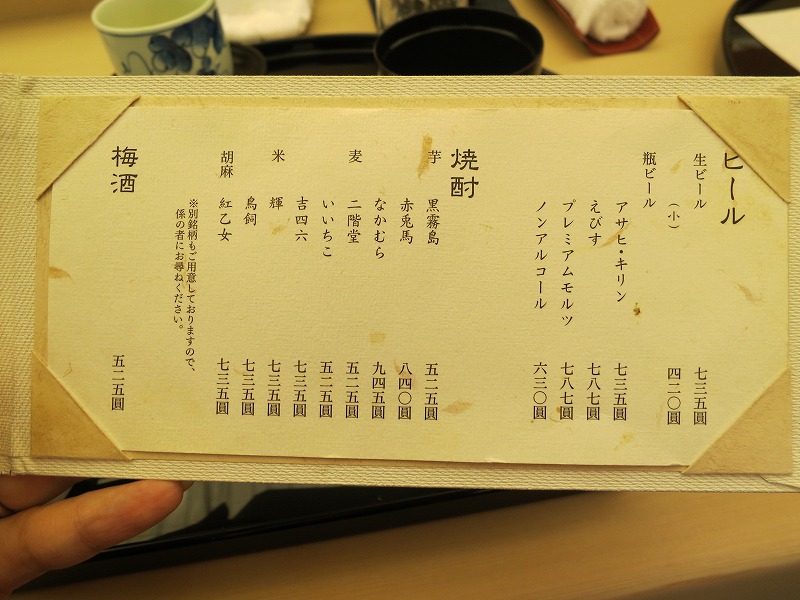 ビール
生ビール 七三五圓
（小） 四二〇圓
瓶ビール
アサヒ・キリン 七三五圓
えびす 七八七圓
プレミアムモルツ 七八七圓
ノンアルコール 六三〇圓
焼酎
芋 黒霧島 五二五圓
赤兎馬 八四〇圓
なかむら 九四五圓
麦 二階堂 五二五圓
いいちこ 五二五圓
吉四六 七三五圓
米 輝 七三五圓
鳥飼 七三五圓
胡麻 紅乙女 七三五圓
※別銘柄もご用意しておりますので、
係の者にお尋ねください。
梅酒 五二五圓